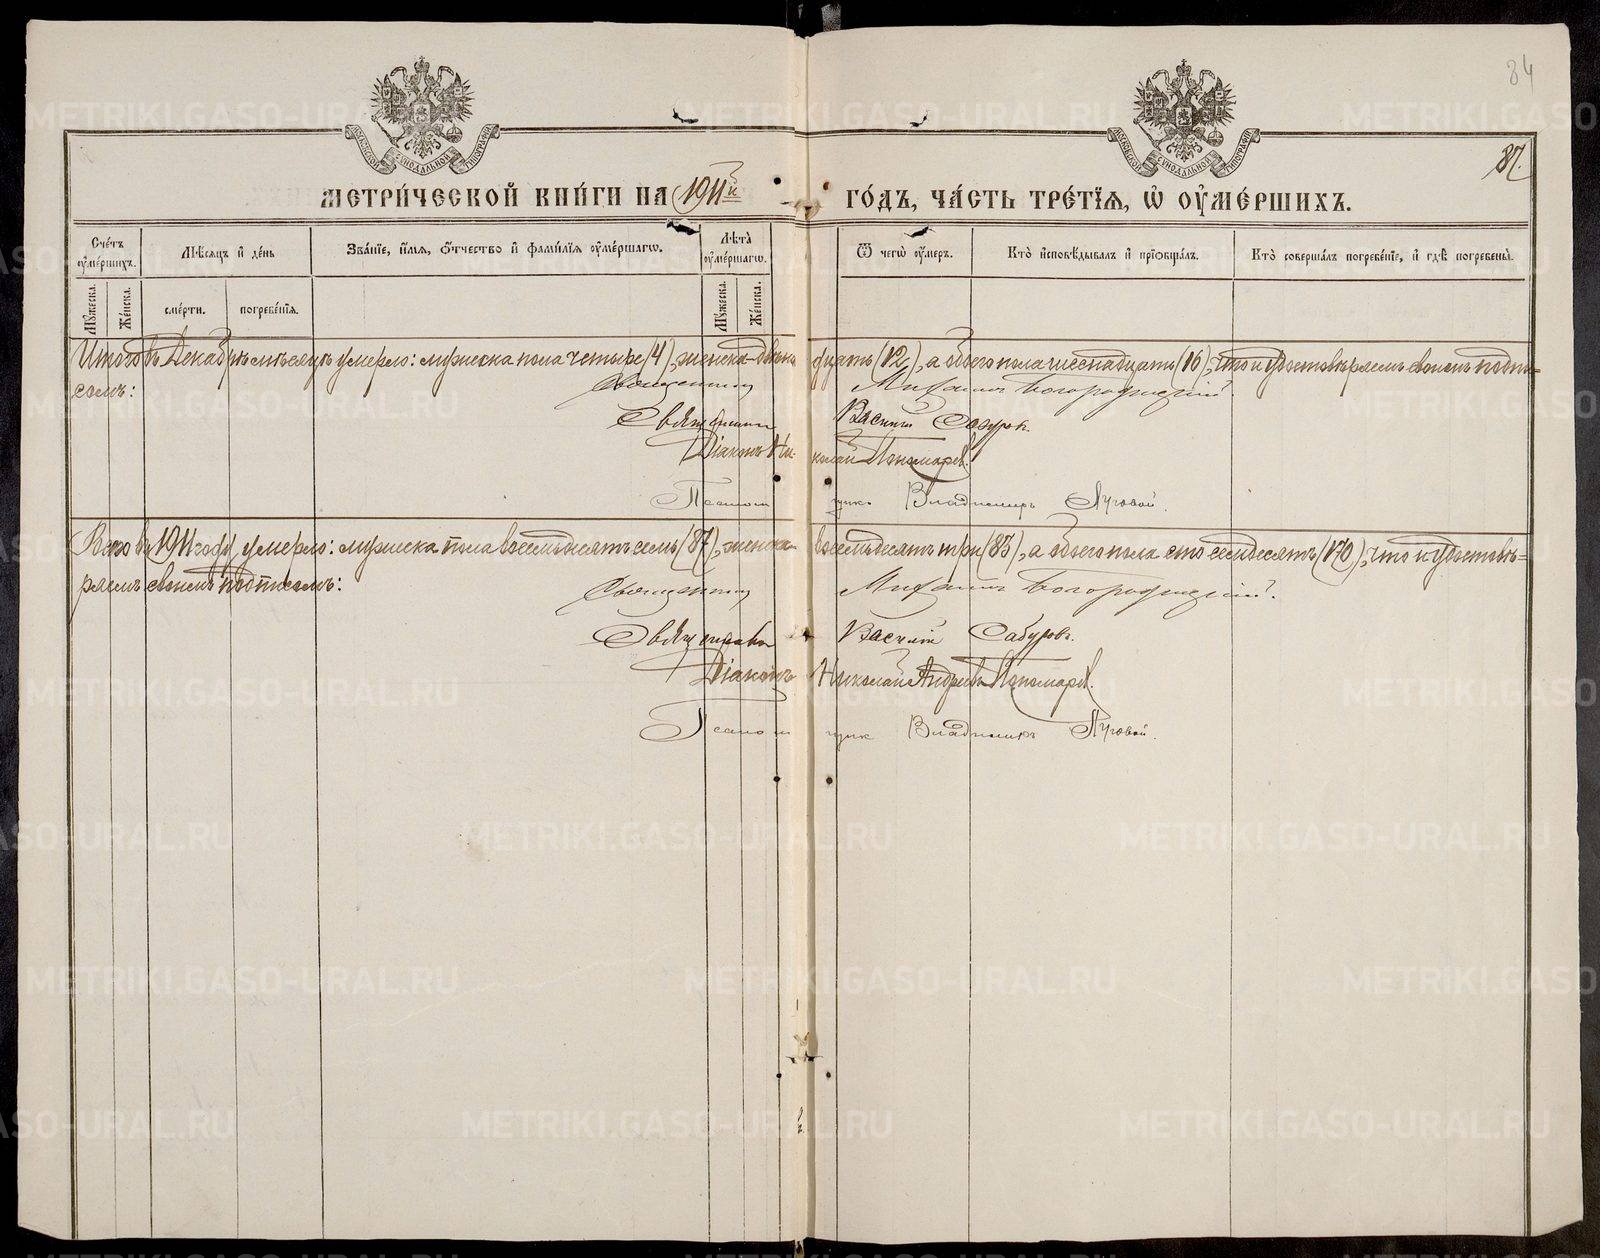 84
87.
МОСКОВСКОЙ СѴНОДАЛЬНОЙ ТИПОГРАФІИ
МОСКОВСКОЙ СѴНОДАЛЬНОЙ ТИПОГРАФІИ
МЕТРИ́ЧЕСКОЙ КНИ́ГИ НА 1911й ГО́ДЪ, ЧА́СТЬ ТРЕ́ТІѦ, Ѡ ОУ҆МЕ́РШИХЪ.
Сче́тъ оу҆ме́ршихъ.
Мѣ́сяцъ и҆ де́нь
Зва́нїе, и҆́мѧ, ѻ҆́тчество и҆ фами́лїѧ оу҆ме́ршагѡ.
Лѣ́та оу҆ме́ршагѡ.
Ѿ чегѡ̀ оу҆́меръ.
Кто̀ и҆сповѣ́дывалъ и҆ прїѻбща́лъ.
Кто̀ соверша́лъ погребе́нїе, и҆ гдѣ̀ погребены̀.
Мꙋ́жеска.
Же́нска.
сме́рти.
погребе́нїѧ.
Мꙋ́жеска.
Же́нска.
Итого въ Декабрѣ мѣсяцѣ умерло: мужеска пола четыре (4), женска двѣнадцать (12), а обоего пола шестнадцать (16), что и удостовѣряемъ своимъ подпи=
сомъ:
Священникъ Михаилъ Богородицкій.
Священникъ Василій Сабуровъ.
Діаконъ Николай Пономаревъ.
Псаломщикъ Владимиръ Луговой.
Всего въ 1911 году умерло: мужеска пола восемьдесятъ семь (87), женска восемьдесятъ три (83), а обоего пола сто семдесятъ (170), что и удостовѣ=
ряемъ своимъ подписомъ:
Священникъ Михаилъ Богородицкій.
Священникъ Василій Сабуровъ.
Діаконъ Николай Андреевъ Пономаревъ.
Псаломщикъ Владимиръ Луговой.
METRIKI.GASO-URAL.RU